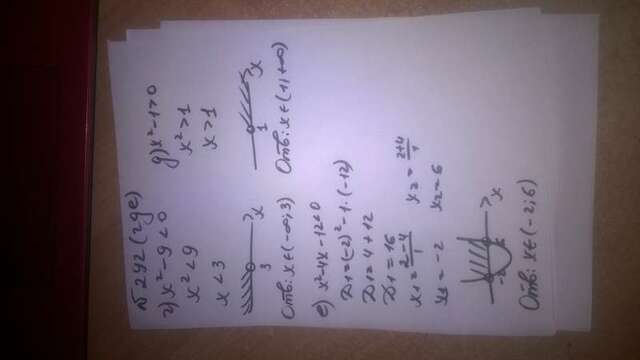 № 292 (г д е)
г) x² - 9 < 0
x² < 9
x < 3
3 x
Отв: x ∈ (-∞; 3)
д) x² - 1 > 0
x² > 1
x > 1
1 x
Отв: x ∈ (1; +∞)
е) x² - 4x - 12 < 0
D1 = (-2)² - 1 · (-12)
D1 = 4 + 12
D1 = 16
x1 = (2 - 4)/1
x1 = -2
x2 = (2 + 4)/1
x2 = 6
x
Отв: x ∈ (-2; 6)